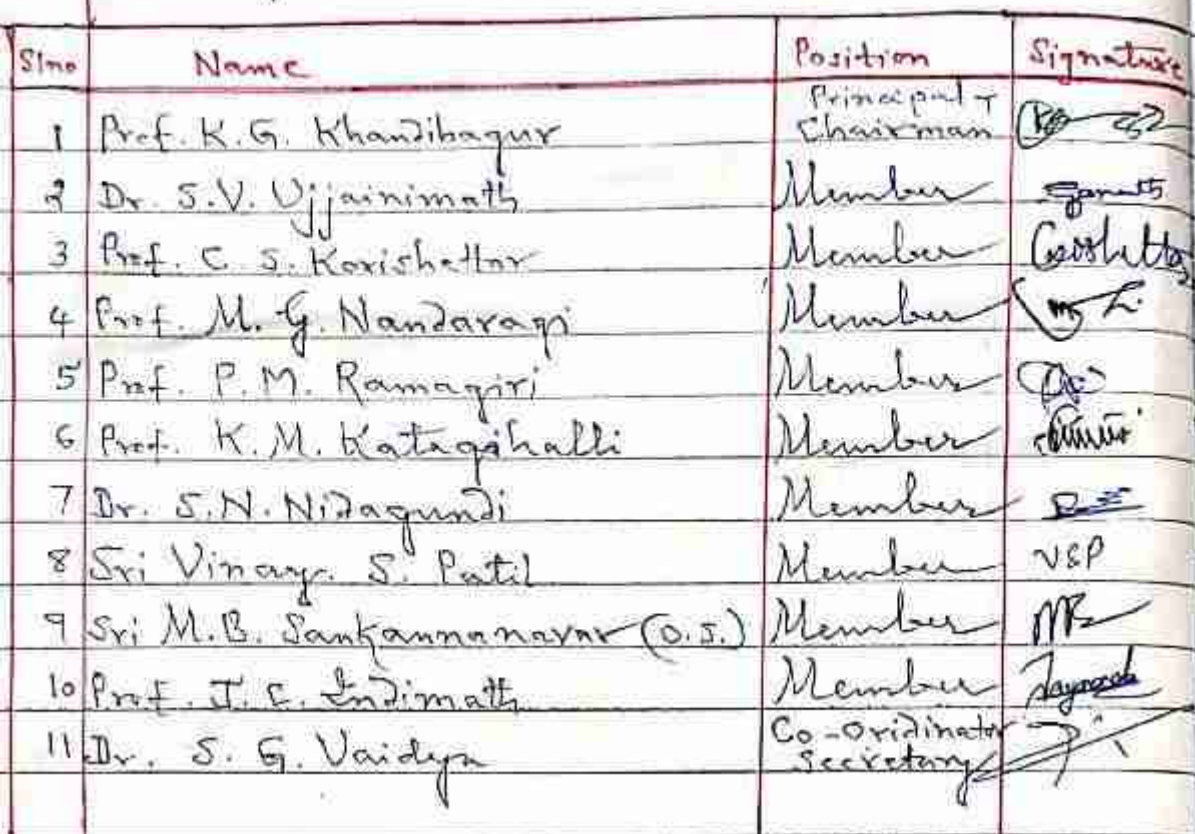 Slno Name Position Signature
1 Prof. K.G. Khandibagur Principal & Chairman
2 Dr. S.V. Ujjainimath Member
3 Prof. C. S. Korishettar Member
4 Prof. M. G. Nandaragi Member
5 Prof. P.M. Ramagiri Member
6 Prof. K.M. Katagihalli Member
7 Dr. S.N. Nidagundi Member
8 Sri Vinay. S. Patil Member VSP
9 Sri M.B. Sankannanavar (O.S.) Member
10 Prof. I. C. Indimath Member
11 Dr. S. G. Vaidya Co-Oridinator Secretary